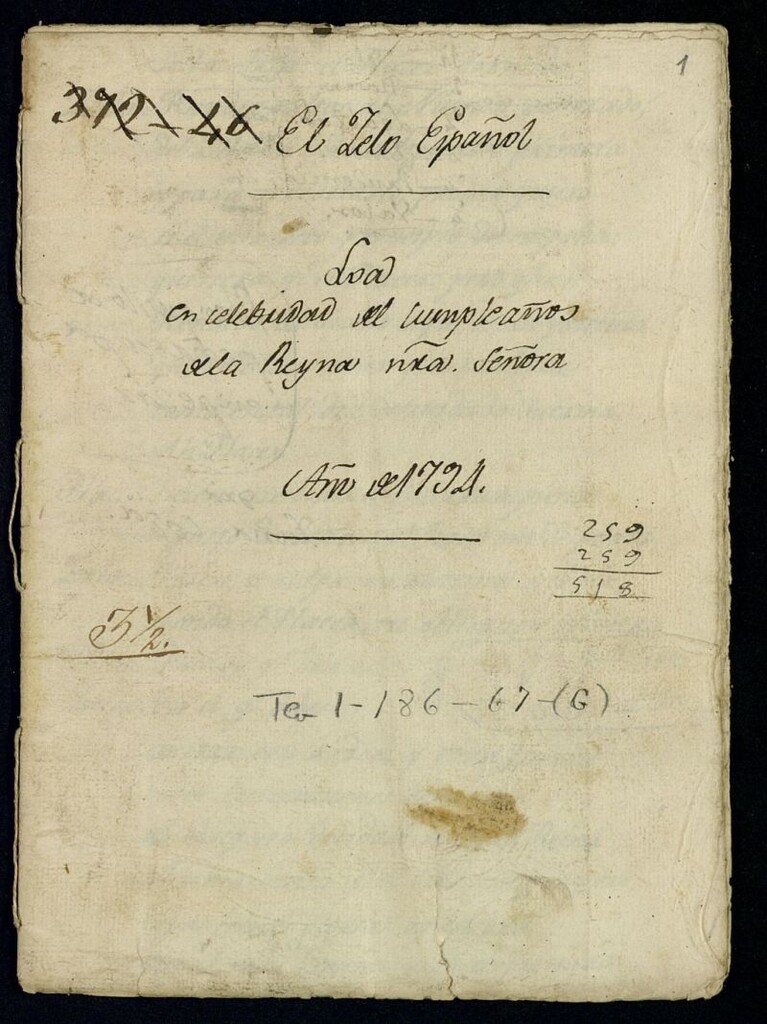 1
392-46
El Zelo Español
Loa
en celebridad del cumpleaños
de la Reyna ntra. Señora
Año de 1794.
259
259
518
3 1/2.
Tea 1-186-67-(G)